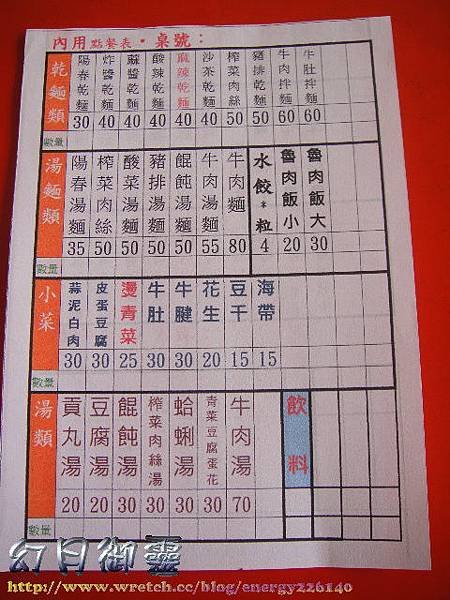 內用點餐表・桌號：
乾麵類
陽春乾麵 30
炸醬乾麵 40
蔴醬乾麵 40
酸辣乾麵 40
麻辣乾麵 40
沙茶乾麵 40
榨菜肉絲 50
豬排乾麵 50
牛肉拌麵 60
牛肚拌麵 60
數量
湯麵類
陽春湯麵 35
榨菜肉絲 50
酸菜湯麵 50
豬排湯麵 50
餛飩湯麵 50
牛肉湯麵 55
牛肉麵 80
水餃*粒 4
魯肉飯小 20
魯肉飯大 30
數量
小菜
蒜泥白肉 30
皮蛋豆腐 30
燙青菜 25
牛肚 30
牛腱 30
花生 20
豆干 15
海帶 15
數量
湯類
貢丸湯 20
豆腐湯 20
餛飩湯 30
榨菜肉絲湯 30
蛤蜊湯 30
青菜豆腐蛋花 30
牛肉湯 70
飲料
數量
幻月御靈
http://www.wretch.cc/blog/energy226140